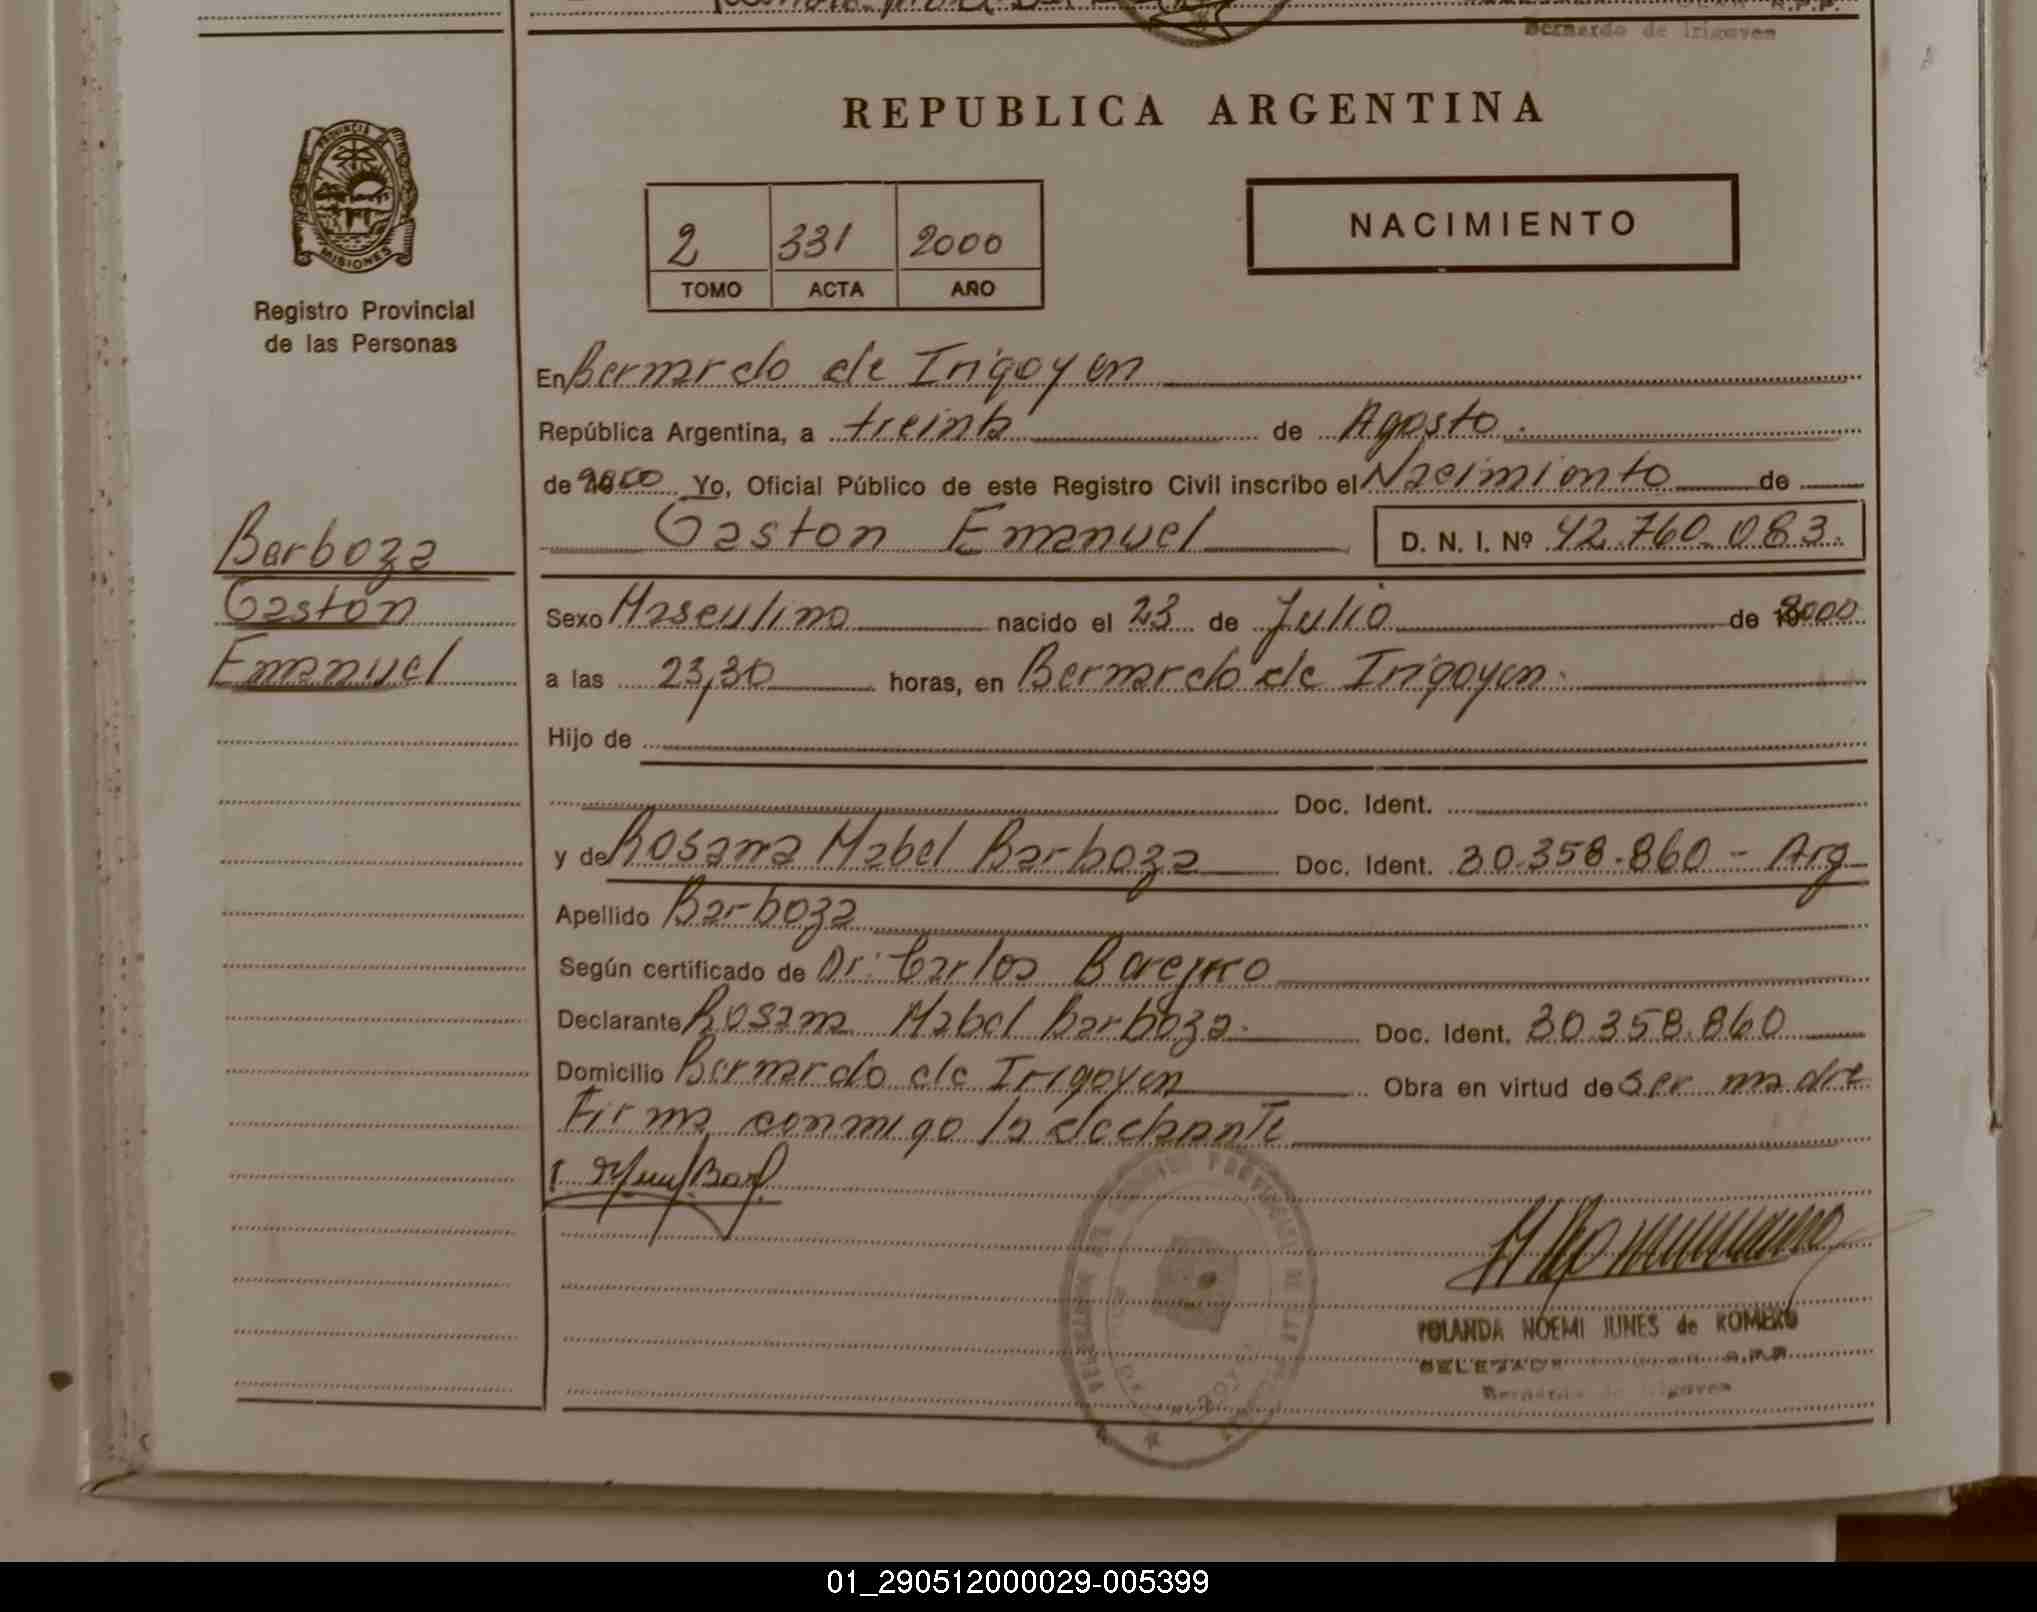 Bernardo de Irigoyen
REPUBLICA ARGENTINA
PROVINCIA DE
MISIONES
Registro Provincial
de las Personas
2 331 2000
TOMO ACTA AÑO
NACIMIENTO
En Bernardo de Irigoyen
República Argentina, a treinta de Agosto
de 2000 Yo, Oficial Público de este Registro Civil inscribo el Nacimiento de
Gaston Emanuel D. N. I. Nº 42.760.083.
Barboza
Gaston
Emanuel
Sexo Masculino nacido el 23 de Julio de 2000
a las 23,30 horas, en Bernardo de Irigoyen.
Hijo de
Doc. Ident.
y de Rosana Mabel Barboza Doc. Ident. 30.358.860 - Arg
Apellido Barboza
Según certificado de Dr. Carlos
Declarante Rosana Mabel Barboza. Doc. Ident. 30.358.860
Domicilio Bernardo de Irigoyen Obra en virtud de ser madre
Firma conmigo la declarante
YOLANDA NOEMI JUNES de ROMERO
Bernardo de Irigoyen
01_290512000029-005399